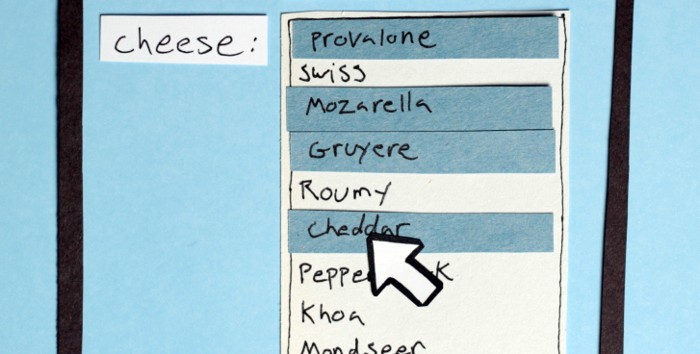 cheese:
Provalone
Swiss
Mozarella
Gruyere
Roumy
cheddar
Khoa
Mondseer